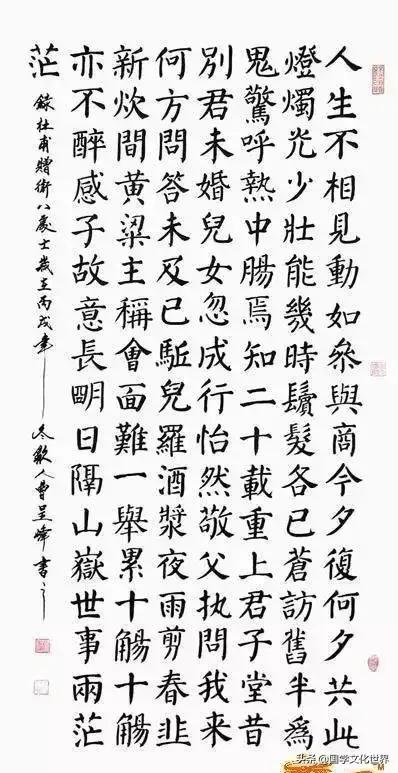 人生不相見動如叅與商今夕復何夕共此
燈燭光少壯能幾時鬢髮各已蒼訪舊半爲
鬼驚呼熱中腸焉知二十載重上君子堂昔
別君未婚兒女忽成行怡然敬父执問我来
何方問答未及已駈兒羅酒漿夜雨剪春韭
新炊間黄粱主稱會面難一舉累十觴十觴
亦不醉感子故意長明日隔山嶽世事兩茫
茫
錄杜甫贈衛八處士歲在丙戌年冬歙人曹呈峰書之
头条@国学文化世界